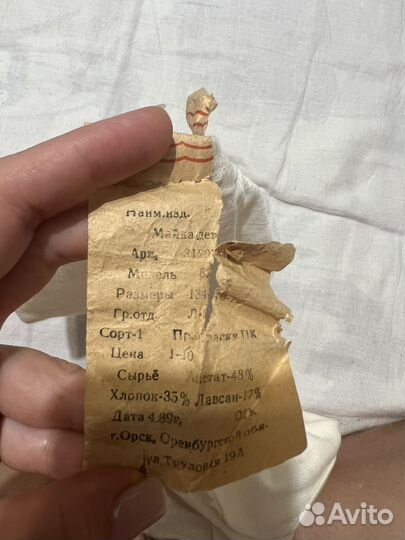 Наим.изд.
Майка дет
Арт.
Модель
Размеры
Гр.отд
Сорт-1 ПК
Цена 1-40
Сырьё Ацетат-48%
Хлопок-35% Лавсан-17%
Дата 4.89г.
г.Орск, Оренбургской обл.
ул.Трудовая 19А
Avito